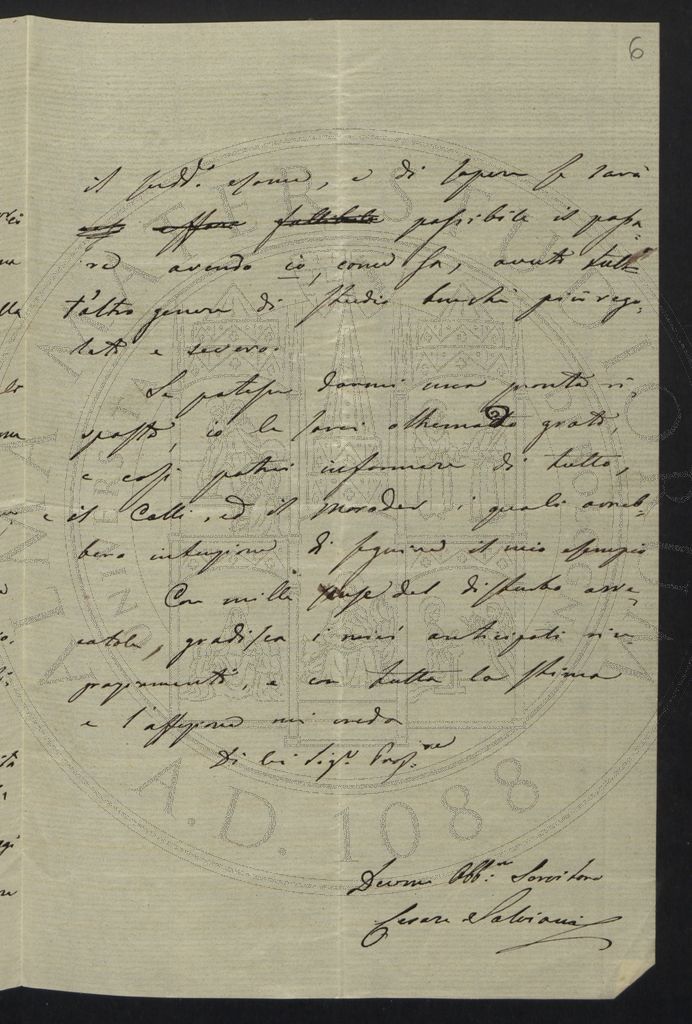 6
il sudd.º esame, e di sapere se sarà
possibile il passa-
re avendo io, come sa, avuti tut-
t'altro genere di studio benchè più rego-
lati e severo.
Se potesse darmi una pronta ri-
sposta, io le sarei oltremodo grato,
e così potrei informare di tutto,
il Calli, ed il Morader i quali avreb-
bero intenzione di seguire il mio esempio
Con mille scuse del disturbo arre-
catole, gradisca i miei anticipati rin-
graziamenti, e con tutta la stima
e l'affezione mi creda
Di Lei Sig.r Prof.re
Devmo Obb.mo Servitore
Cesare Salviani
ALMA MATER STUDIORUM
A.D. 1088